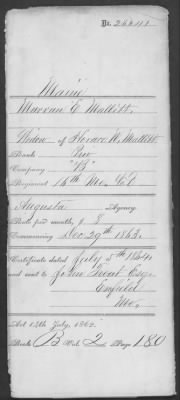 No. 26641
Maine
Marran E. Mallett.
Widow of Horace W. Mallett.
Rank Priv
Company "B"
Regiment 16th Me. Vol
Augusta Agency
Rate per month, $ 8
Commencing Dec 29th 1863.
Certificate dated July 5th 1864
and sent to John Treat Esq.
Enfield
Me.
Act 14th July, 1862.
Book B Vol. 2 Page 180